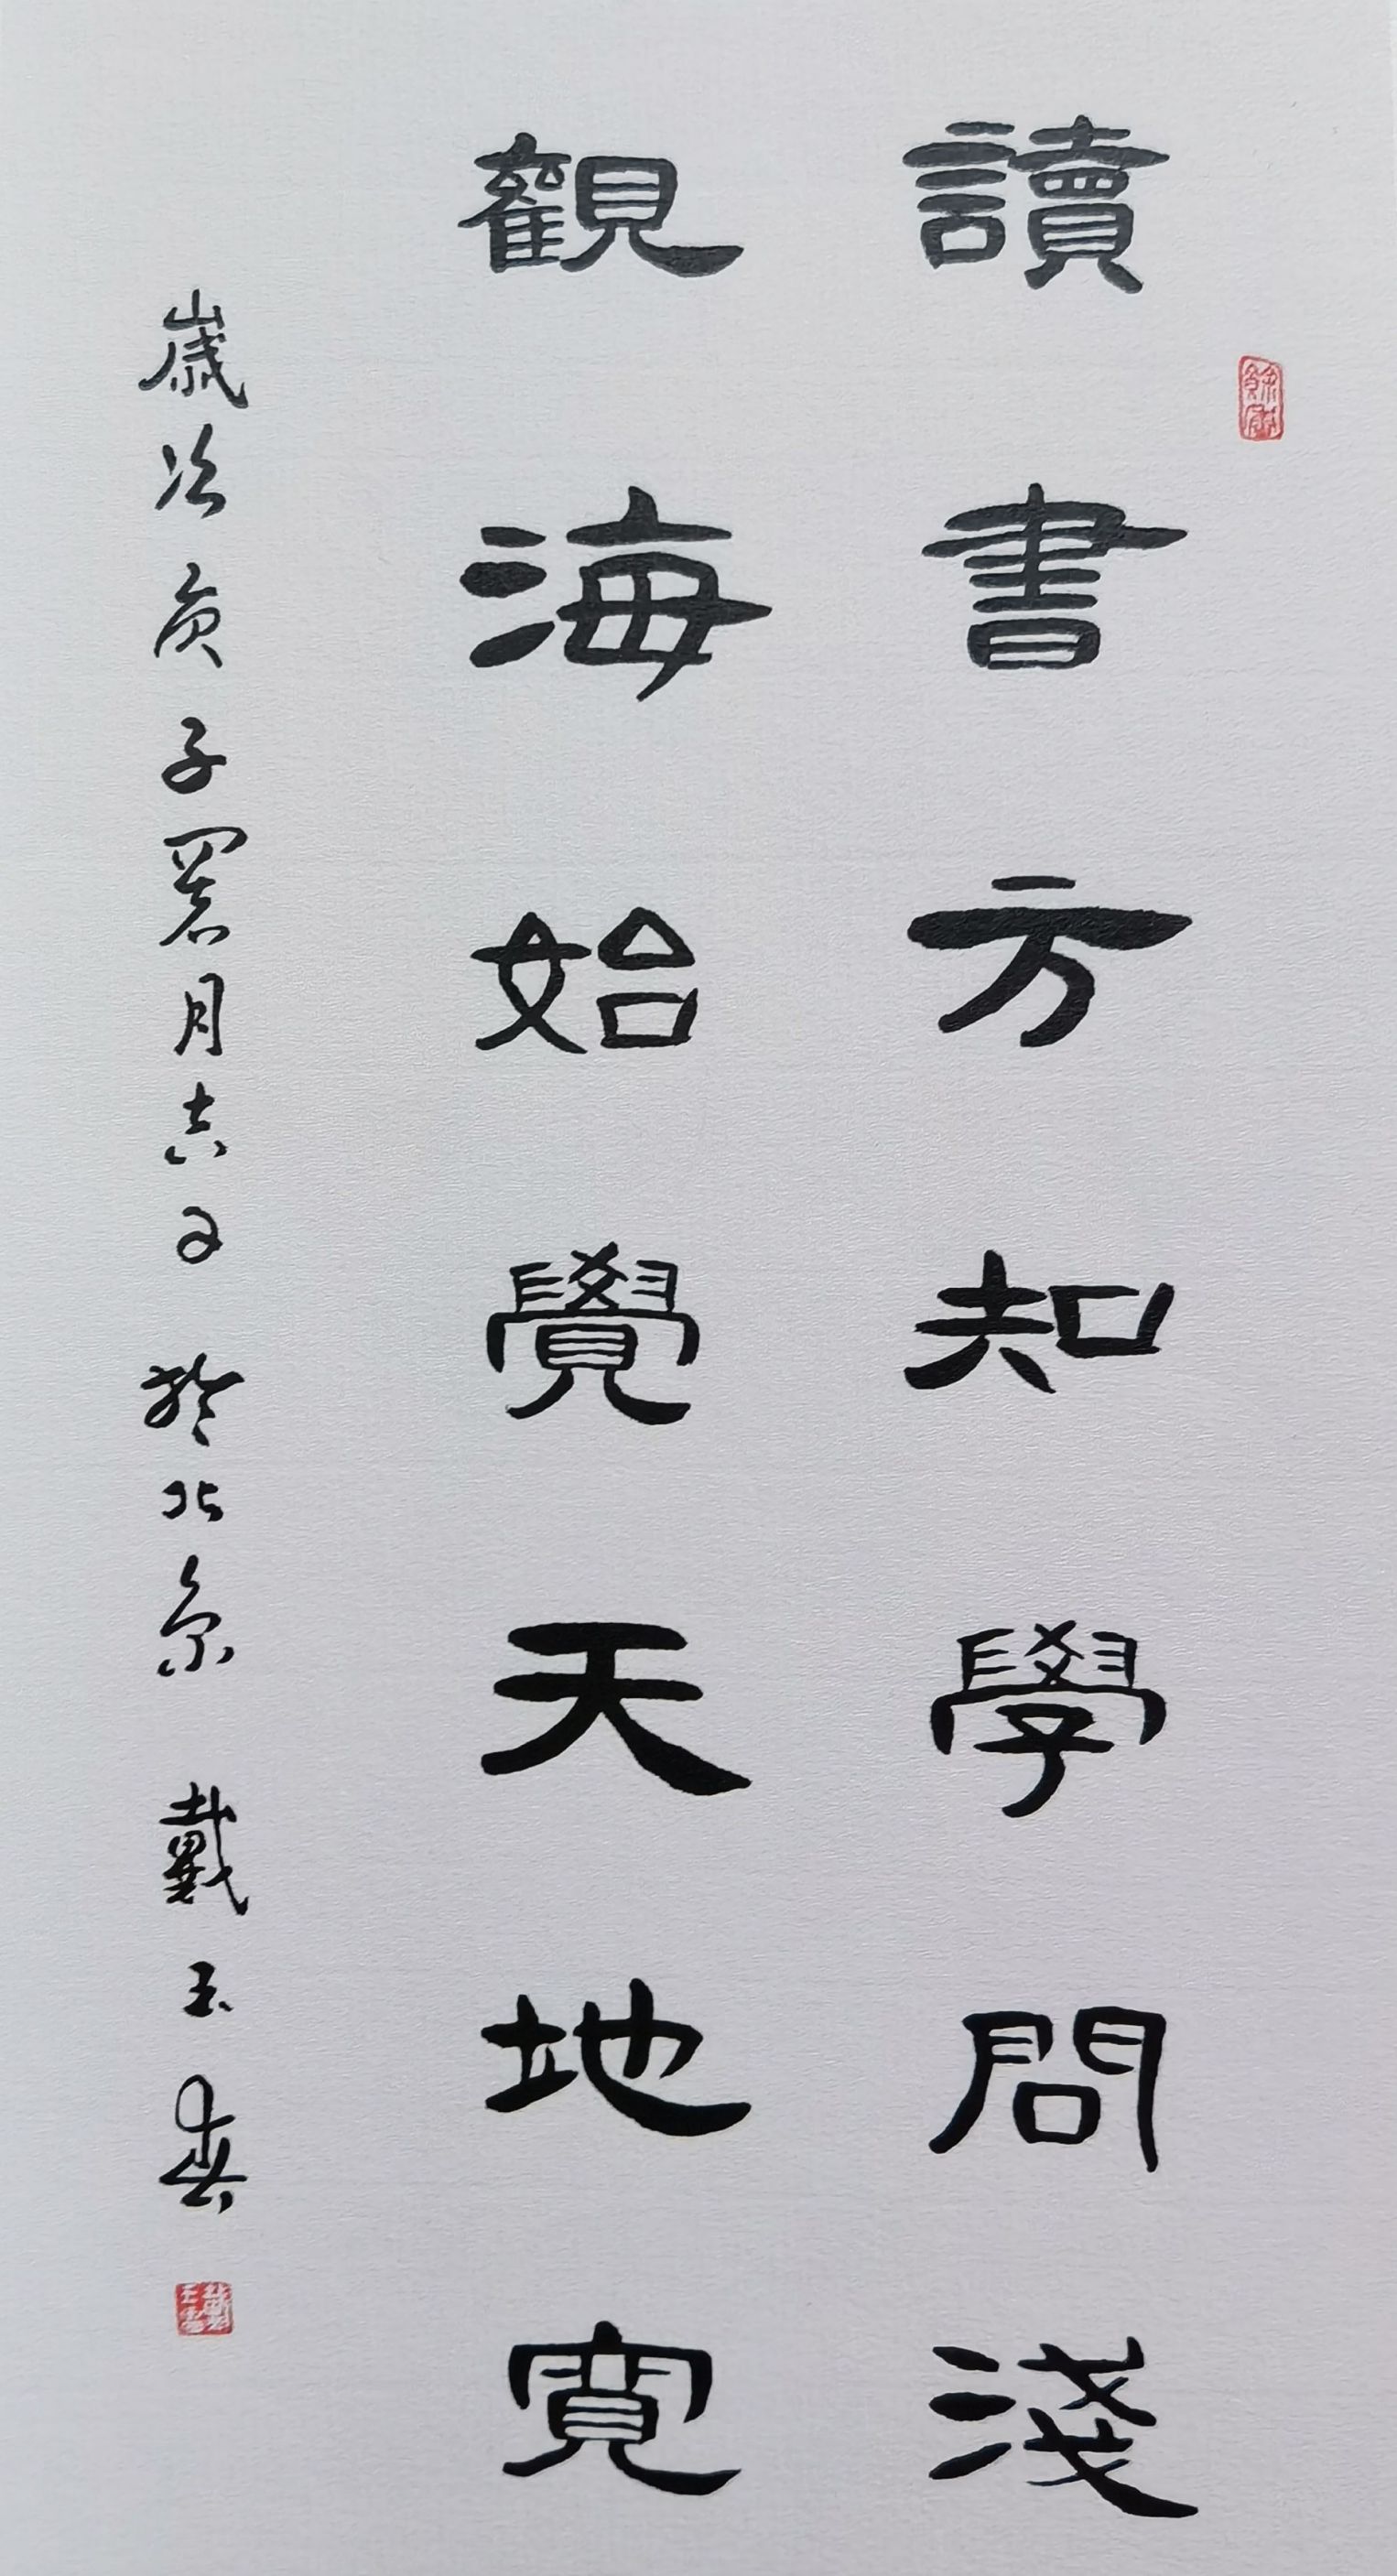 讀書方知學問淺
觀海始覺天地寬
歲次庚子署月吉日於北京戴玉春